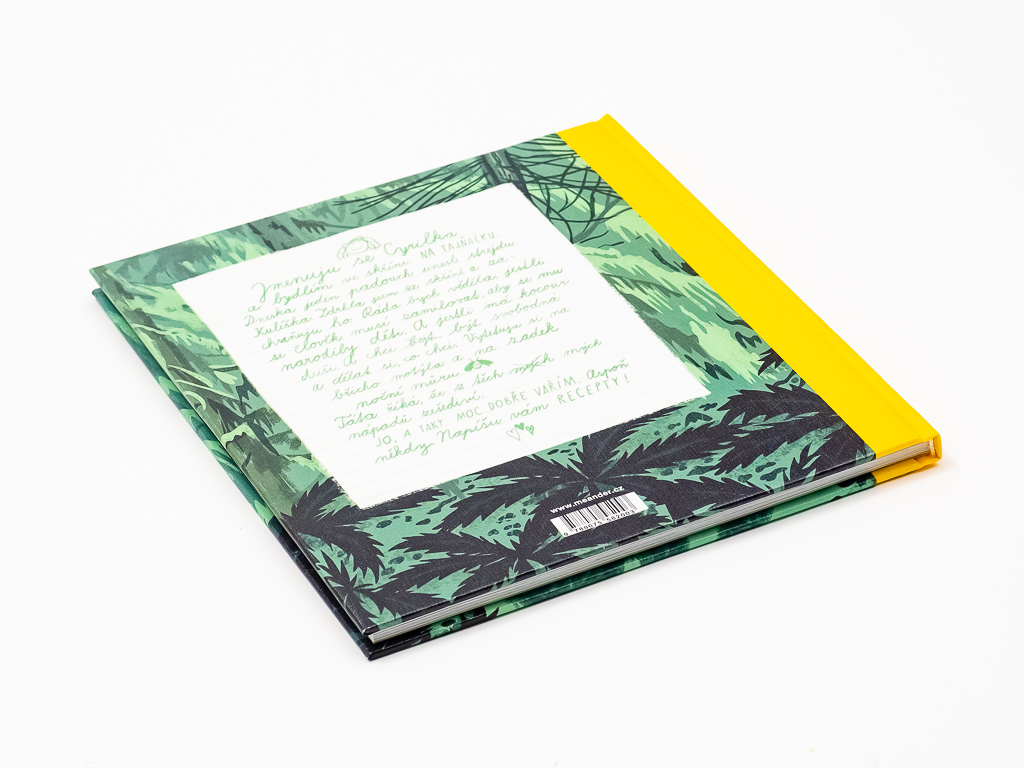 Jmenuju se Cyrilka
a bydlím ve skříni NA TAJŇÁKU.
Dneska jeden padouch unesl strejdu
Kulíška Zdrhla jsem ze skříně a za-
chraňuju ho Ráda bych věděla, jestli
se člověk musí zamilovat, aby se mu
narodily děti. A jestli má kocour
duši. A chci být svobodná
a dělat si, co chci. Vyťešuju si na
břicho motýla a na zadek
noční můru.
Táta říká, že z těch mejch mých
nápadů zešediví.
JO, A TAKY MOC DOBŘE VAŘÍM. Aspoň
někdy Napíšu vám RECEPTY!
www.meander.cz
9 788075 582003